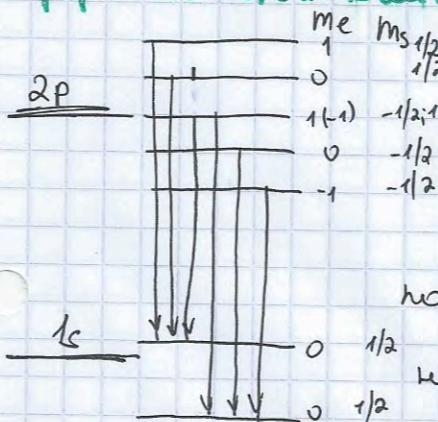 me ms
1 1/2
0 1/2
2p
1(-1) -1/2; 1
0 -1/2
-1 -1/2
1s
0 1/2
0 1/2